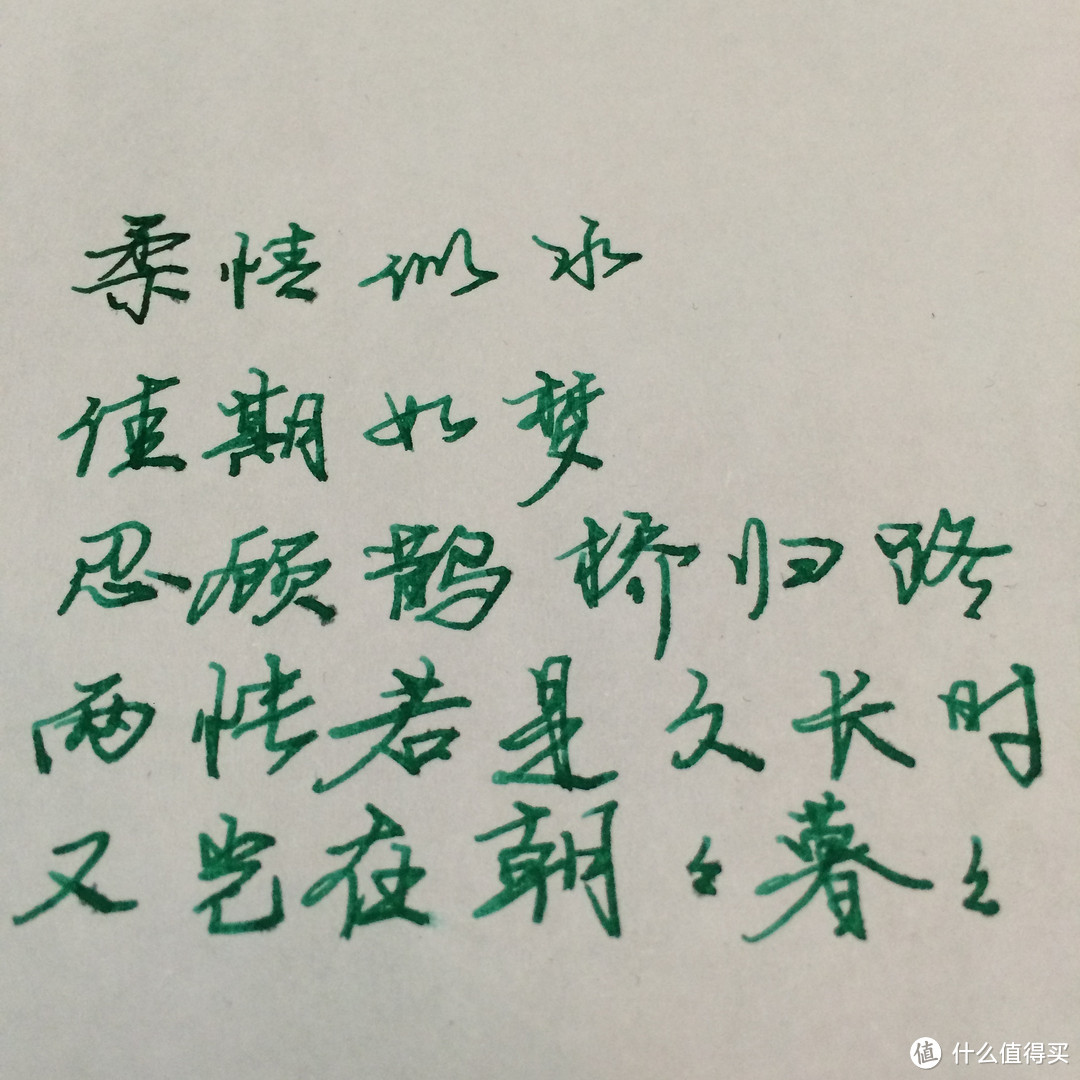 柔情似水
佳期如梦
忍顾鹊桥归路
两情若是久长时
又岂在朝々暮々
值 什么值得买